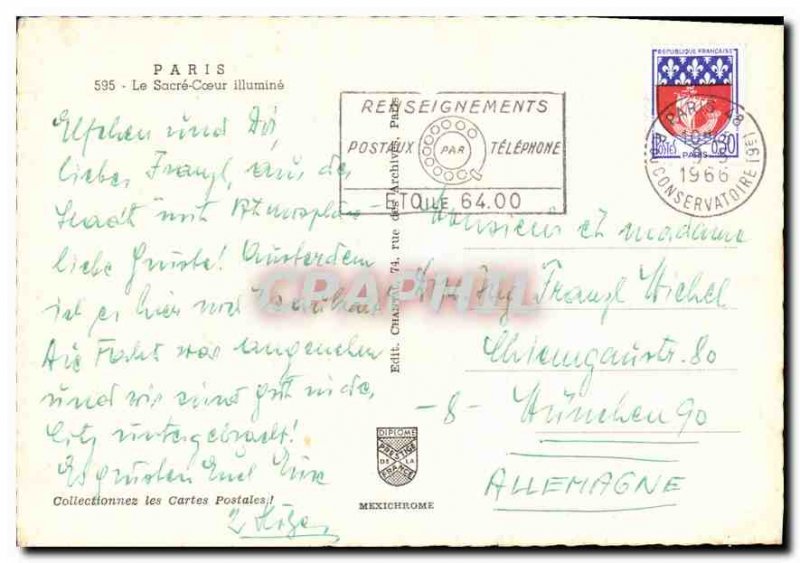 PARIS
595 - Le Sacré-Cœur illuminé
Elfchen und Dir,
lieber Franzl, aus der
Stadt mit Atmosphäre
liebe Grüße! Außerdem
ist es hier
Die Fahrt war angenehm
und wir sind gut
untergebracht!
Es grüßen Euch Eure
Collectionnez les Cartes Postales!
Edit. CHANTAL 74, rue des Archives, Paris
DIPLOME
PRESTIGE
DE LA
FRANCE
MEXICHROME
RENSEIGNEMENTS
POSTAUX PAR TÉLÉPHONE
ETOILE 64.00
REPUBLIQUE FRANÇAISE
POSTES 0,30
PARIS
PARIS 18
1966
CONSERVATOIRE (9e)
Monsieur et madame
Franzl Michel
Chiemgaustr. 80
-8- München 90
ALLEMAGNE
CPAPHIL